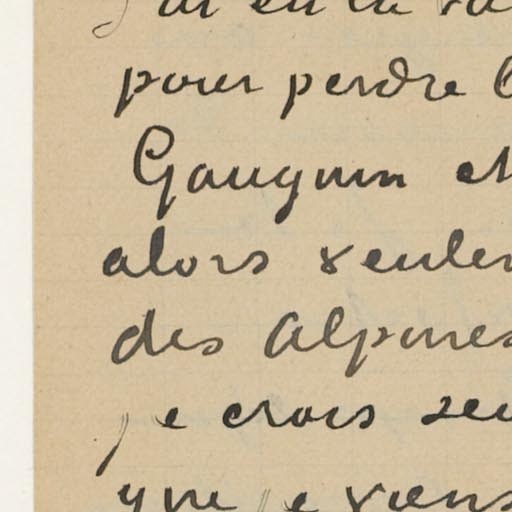 J'ai eu la
pour perdre
Gauguin et
alors seulem
des Alpines
je crois seu
que je viens